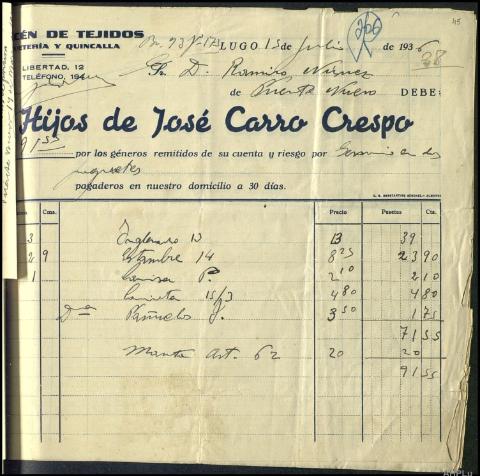 CÉN DE TEJIDOS
ETERÍA Y QUINCALLA
LIBERTAD, 12
TELÉFONO, 194
266
45
LUGO, 13 de Julio de 193
38
Sr. D. Ramiro Nuñez
de Puerta Nueva DEBE:
Hijos de José Carro Crespo
91 55
por los géneros remitidos de su cuenta y riesgo por
paquetes
pagaderos en nuestro domicilio a 30 días.
Cms. Precio Pesetas Cts.
3 13 13 39
2 9 14 8 25 23 90
1 Camisa P. 2 10 2 10
Camiseta 15/3 4 80 4 80
Da Pañuelos J. 3 50 1 75
71 55
Manta Art. 62 20 20
91 55